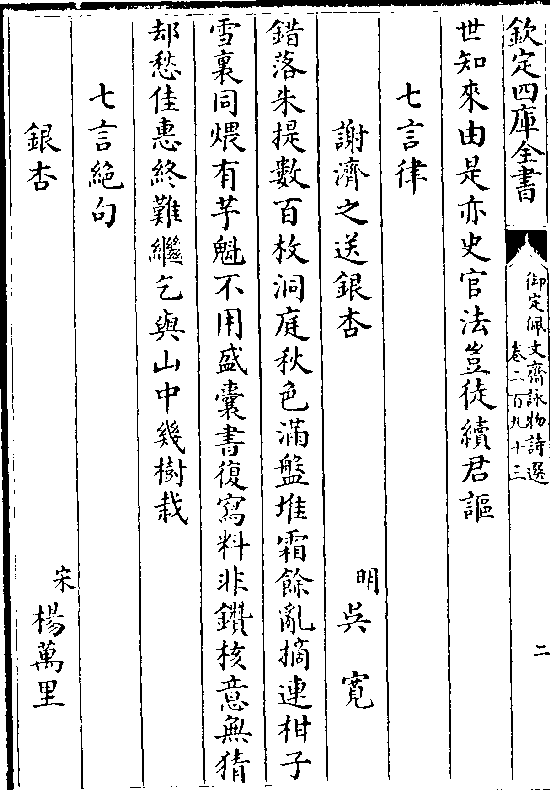 欽定四庫全書
御定佩文齋詠物詩選
卷二百九十三
二
世知來由是亦史官法豈徒續君謳
七言律
謝濟之送銀杏
明吳寬
錯落朱提數百枚洞庭秋色滿盤堆霜餘亂摘連柑子
雪裏同煨有芋魁不用盛囊書復寫料非鑽核意無猜
却愁佳惠終難繼乞與山中幾樹栽
七言絶句
銀杏
宋楊萬里